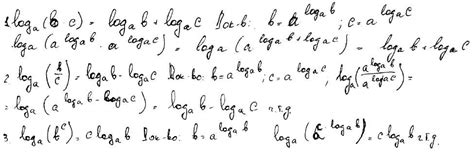 1. log_a(b c) = log_a b + log_a c Док-во: b = a^{log_a b}; c = a^{log_a c}
log_a(a^{log_a b} · a^{log_a c}) = log_a(a^{log_a b + log_a c}) = log_a b + log_a c
2. log_a(b/c) = log_a b - log_a c Док-во: b = a^{log_a b}; c = a^{log_a c}, log_a(a^{log_a b}/a^{log_a c}) =
= log_a(a^{log_a b - log_a c}) = log_a b - log_a c ч.т.д.
3. log_a(b^c) = c log_a b Док-во: b = a^{log_a b} log_a(a^{c log_a b}) = c log_a b ч.т.д.